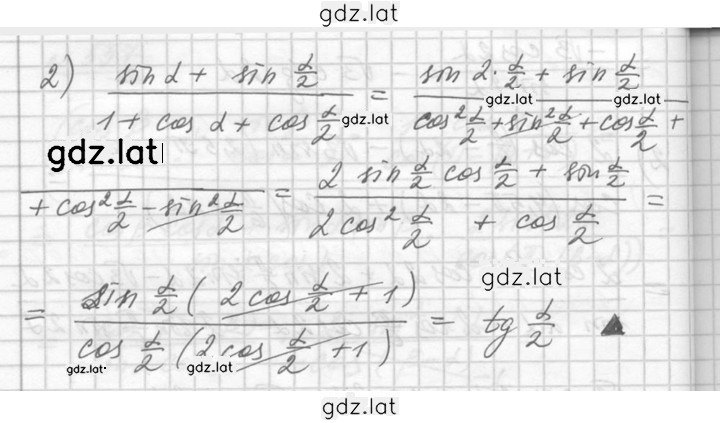 gdz.lat
2) (sin α + sin α/2) / (1 + cos α + cos α/2) = (sin 2·α/2 + sin α/2) / (cos² α/2 + sin² α/2 + cos α/2 +
gdz.lat gdz.lat gdz.lat
gdz.lat
+ cos² α/2 - sin² α/2) = (2 sin α/2 cos α/2 + sin α/2) / (2 cos² α/2 + cos α/2) =
gdz.lat
= (sin α/2 (2 cos α/2 + 1)) / (cos α/2 (2 cos α/2 + 1)) = tg α/2 ▲
gdz.lat gdz.lat
gdz.lat